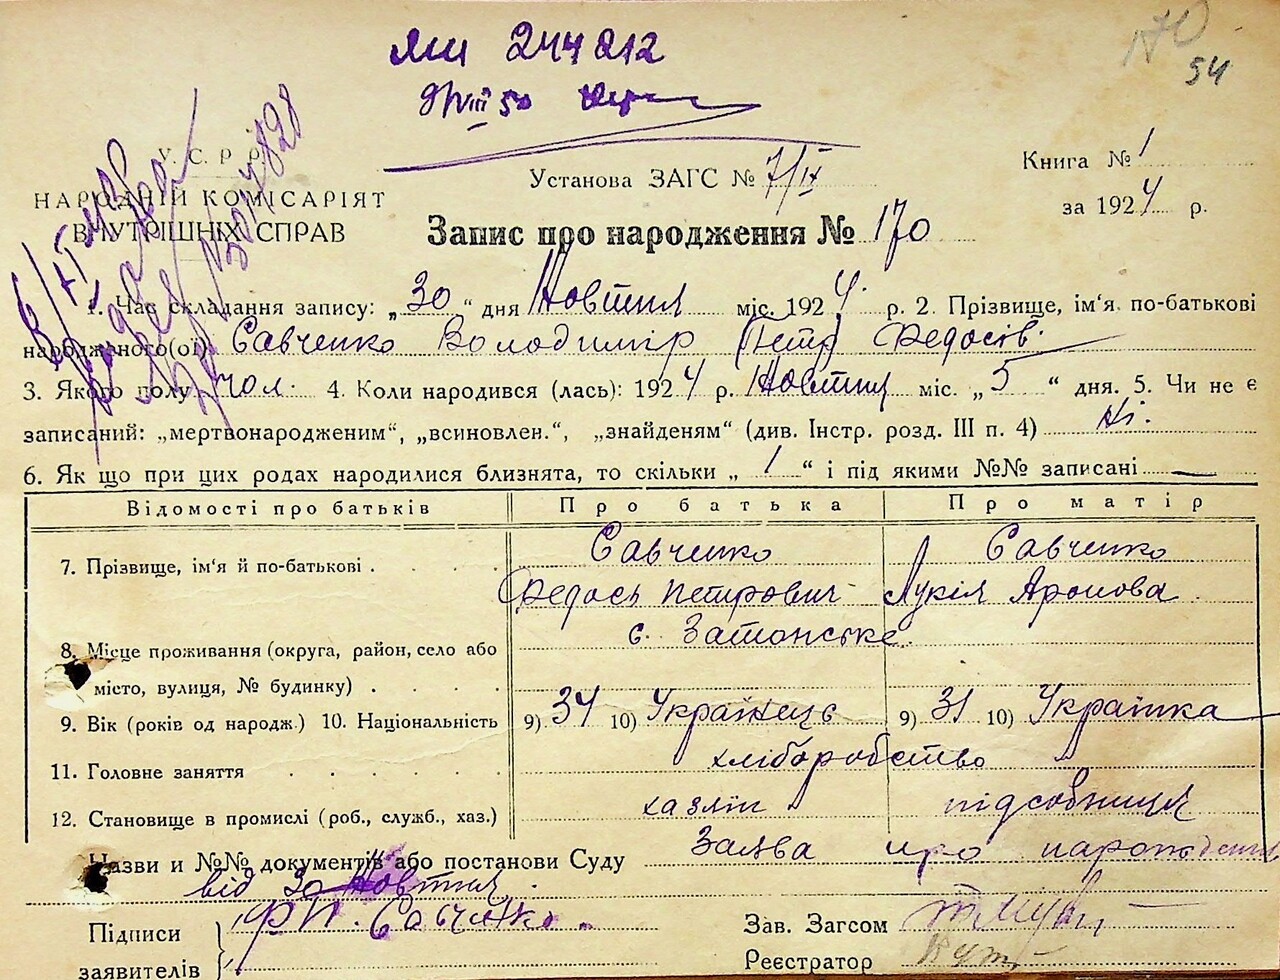 ЯШ 244212
9/VIII 50
170
54
У. С. Р. Р.
НАРОДНІЙ КОМІСАРІЯТ
ВНУТРІШНІХ СПРАВ
Установа ЗАГС № 7/IX
Книга № 1
за 1924 р.
Запис про народження № 170
1. Час складання запису: „30“ дня Жовтня міс. 1924 р. 2. Прізвище, ім'я. по-батькові
народженого(ої) Савченко Володимір (Петр) Федосів.
3. Якого полу чол. 4. Коли народився (лась): 1924 р. Жовтня міс. „5“ дня. 5. Чи не є
записаний: „мертвонародженим“, „всиновлен.“, „знайденям“ (див. Інстр. розд. III п. 4) Ні.
6. Як що при цих родах народилися близнята, то скільки „1“ і під якими №№ записані —
Відомості про батьків Про батька Про матір
7. Прізвище, ім'я й по-батькові . . . . Савченко Савченко
Федось Петрович Лукія Аронова
с. Затонське.
8. Місце проживання (округа, район, село або
місто, вулиця, № будинку) . . . .
9. Вік (років од народж.) 10. Національність 9) 34 10) Українець 9) 31 10) Українка
11. Головне заняття . . . . . хліборобство
12. Становище в промислі (роб., служб., хаз.) хазяін підсобниця
Назви и №№ документів або постанови Суду Заява про народження
від 30 Жовтня.
Підписи
заявителів
Ф П. Савченко.
Зав. Загсом
Реєстратор